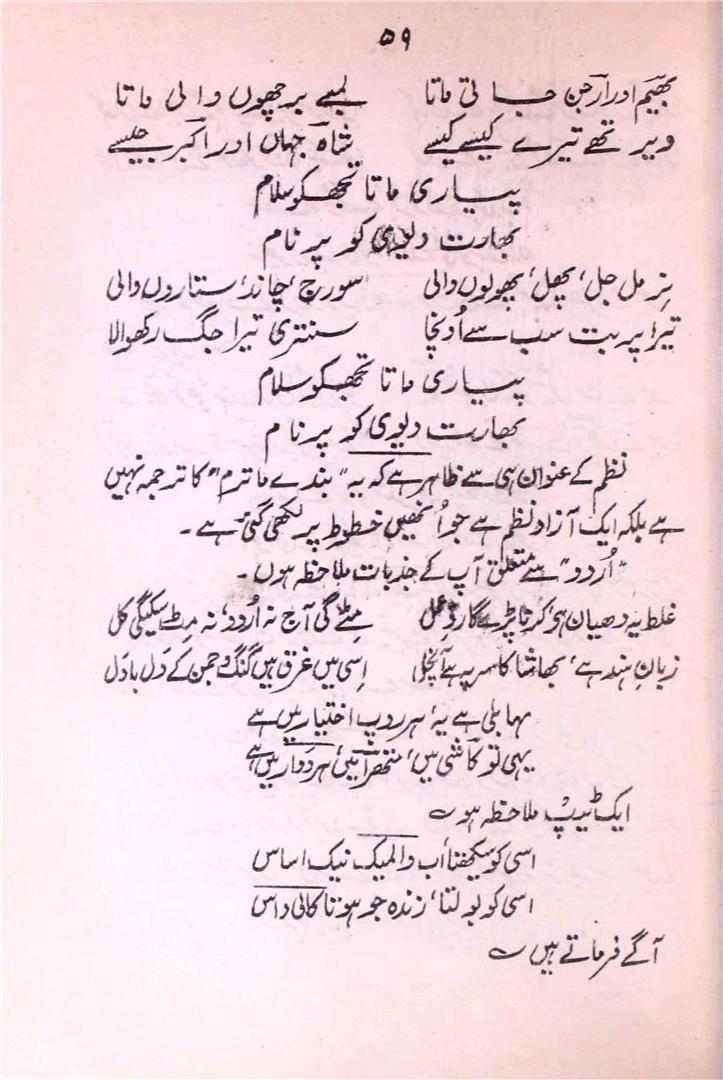 ۵۹
بھیم اور ارجن جاتی ماتا لمبے برچھوں والی ماتا
ویر تھے تیرے کیسے کیسے شاہ جہاں اور اکبر جیسے
پیاری ماتا تجھکو سلام
بھارت دیوی کو پرنام
نرمل جل، پھل، پھولوں والی سورج، چاند، ستاروں والی
تیرا پربت سب سے اُونچا سنتری تیرا جگ رکھوالا
پیاری ماتا تجھکو سلام
بھارت دیوی کو پرنام
نظم کے عنوان ہی سے ظاہر ہے کہ یہ "بندے ماترم" کا ترجمہ نہیں
ہے بلکہ ایک آزاد نظم ہے جو اُنھیں خطوط پر لکھی گئی ہے۔
"اُردو" سے متعلق آپ کے جذبات ملاحظہ ہوں۔
غلط یہ دھیان ہے، کرنا پڑے گا ردِ عمل مِٹے گی آج نہ اُردو، نہ مِٹ سکیگی کل
زبانِ ہند ہے، بھاشا کا سر پہ ہے آنچل اِسی میں غرق ہیں گنگ و جمن کے دَل بادَل
مہابلی ہے یہ، ہر روپ اختیار میں ہے
یہی تو کاشی میں، متھرا میں، ہردوار میں ہے
ایک ٹیپ ملاحظہ ہو ؎
اسی کو سیکھتا اَب والمیک نیک اساس
اسی کو بولتا، زندہ جو ہوتا کالی داس
آگے فرماتے ہیں ؎